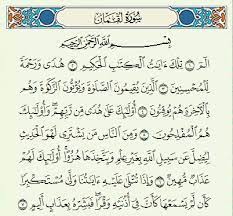 سُورَةُ لُقْمَانَ
بِسْمِ ٱللَّهِ ٱلرَّحْمَٰنِ ٱلرَّحِيمِ
الٓمٓ ١ تِلْكَ ءَايَٰتُ ٱلْكِتَٰبِ ٱلْحَكِيمِ ٢ هُدًى وَرَحْمَةً
لِّلْمُحْسِنِينَ ٣ ٱلَّذِينَ يُقِيمُونَ ٱلصَّلَوٰةَ وَيُؤْتُونَ ٱلزَّكَوٰةَ وَهُم
بِٱلْءَاخِرَةِ هُمْ يُوقِنُونَ ٤ أُو۟لَٰٓئِكَ عَلَىٰ هُدًى مِّن رَّبِّهِمْ وَأُو۟لَٰٓئِكَ
هُمُ ٱلْمُفْلِحُونَ ٥ وَمِنَ ٱلنَّاسِ مَن يَشْتَرِى لَهْوَ ٱلْحَدِيثِ
لِيُضِلَّ عَن سَبِيلِ ٱللَّهِ بِغَيْرِ عِلْمٍ وَيَتَّخِذَهَا هُزُوًا أُو۟لَٰٓئِكَ لَهُمْ
عَذَابٌ مُّهِينٌ ٦ وَإِذَا تُتْلَىٰ عَلَيْهِ ءَايَٰتُنَا وَلَّىٰ مُسْتَكْبِرًا
كَأَن لَّمْ يَسْمَعْهَا كَأَنَّ فِىٓ أُذُنَيْهِ وَقْرًا فَبَشِّرْهُ بِعَذَابٍ أَلِيمٍ ٧